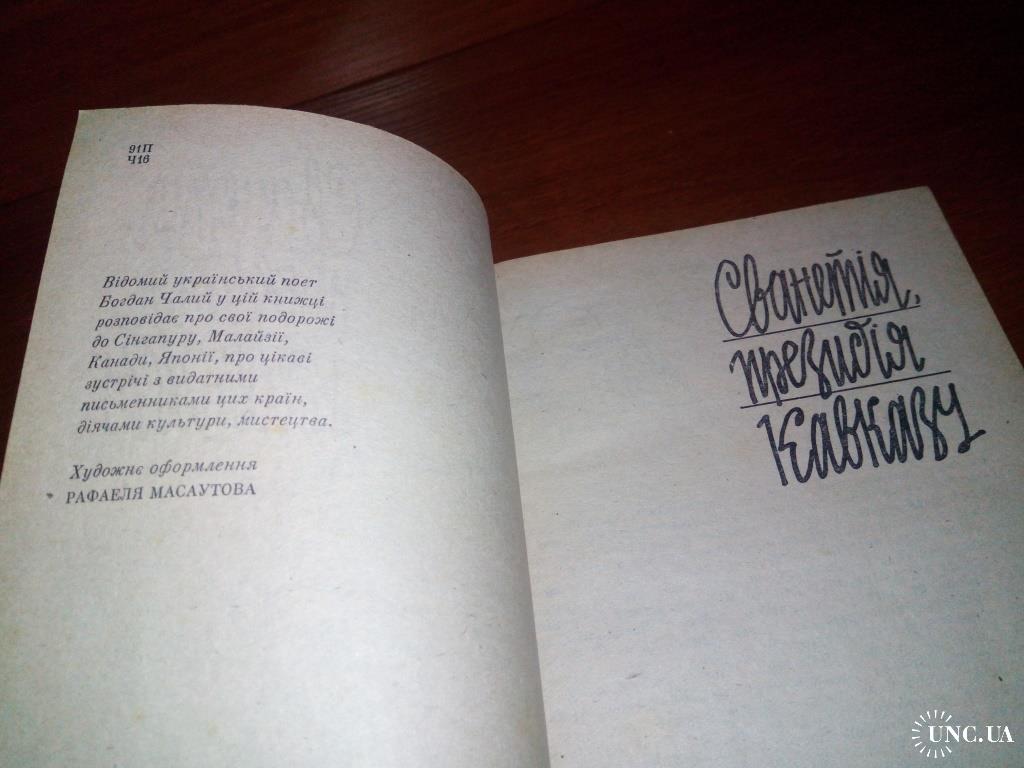 91П
Ч16
Відомий український поет
Богдан Чалий у цій книжці
розповідає про свої подорожі
до Сінгапуру, Малайзії,
Канади, Японії, про цікаві
зустрічі з видатними
письменниками цих країн,
діячами культури, мистецтва.
Художнє оформлення
РАФАЕЛЯ МАСАУТОВА
Сванетія,
президія
Кавказу
UNC.UA